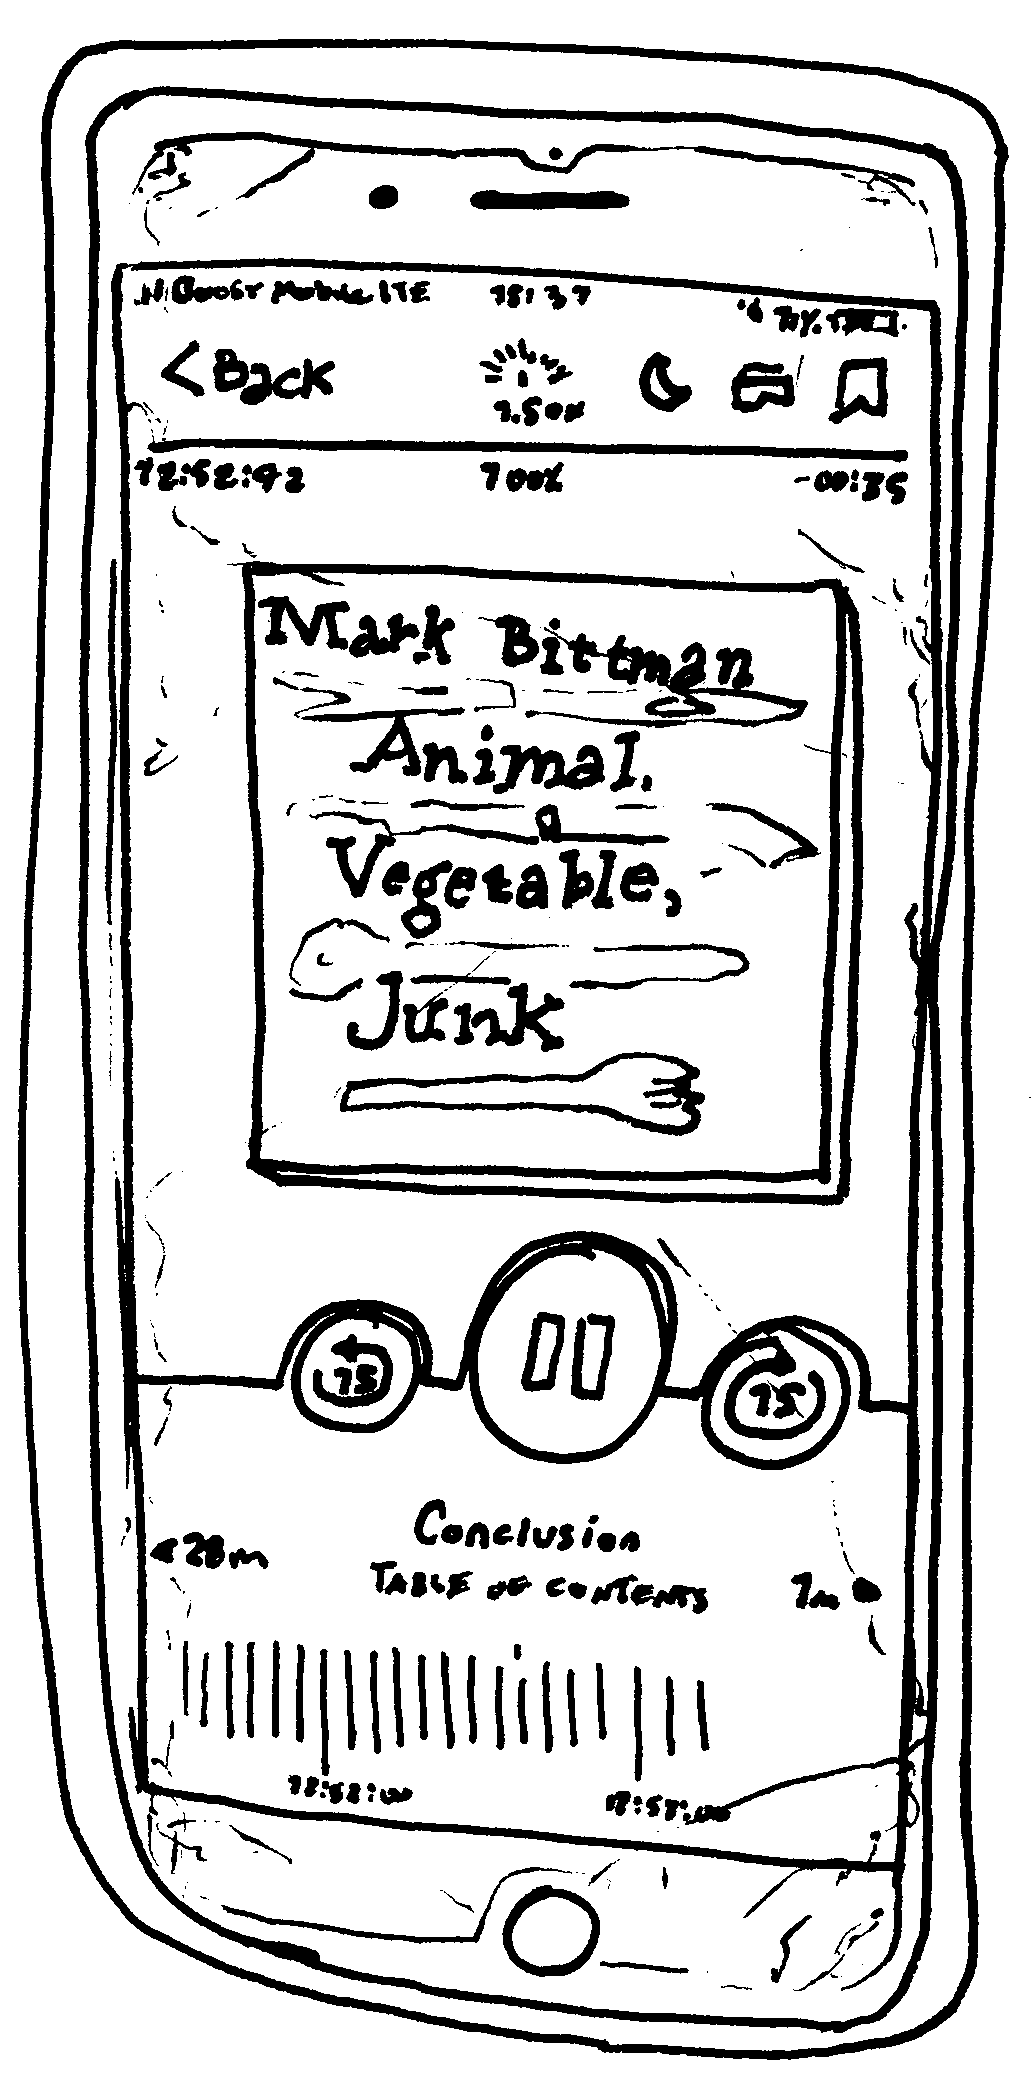 Boost Mobile LTE 18:37 71%
< Back 1.50x
12:52:42 100% -00:35
Mark Bittman
Animal,
Vegetable,
Junk
15 15
Conclusion
28m
TABLE OF CONTENTS 1m
12:52:00 12:53:00